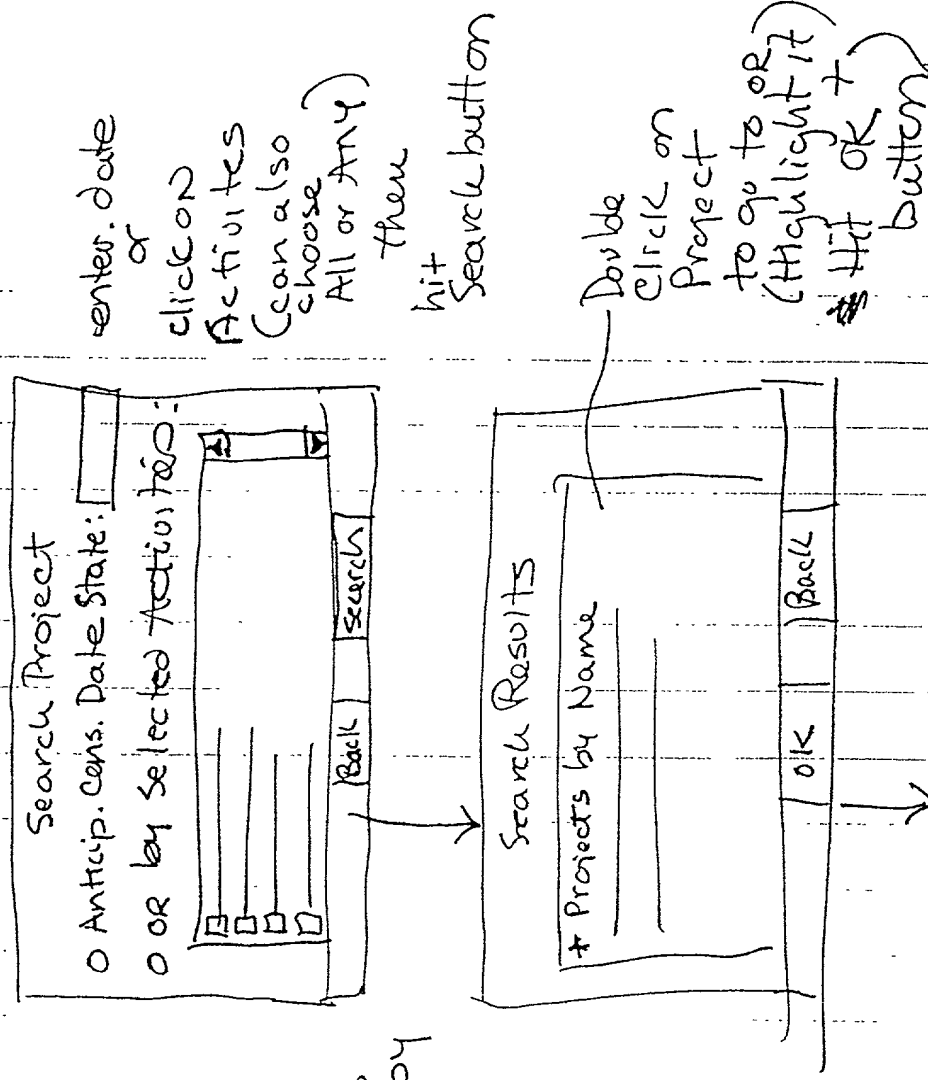 Search Project
O Anticip. Cons. Date State:
O OR by Selected Activities:
Back
Search
enter date
or
click on
Activites
(can also
choose
All or Any)
then
hit
Search button
Search Results
* Projects by Name
OK
Back
Double
Click on
Project
to go to OR
(Highlight it
+
Hit OK
button)